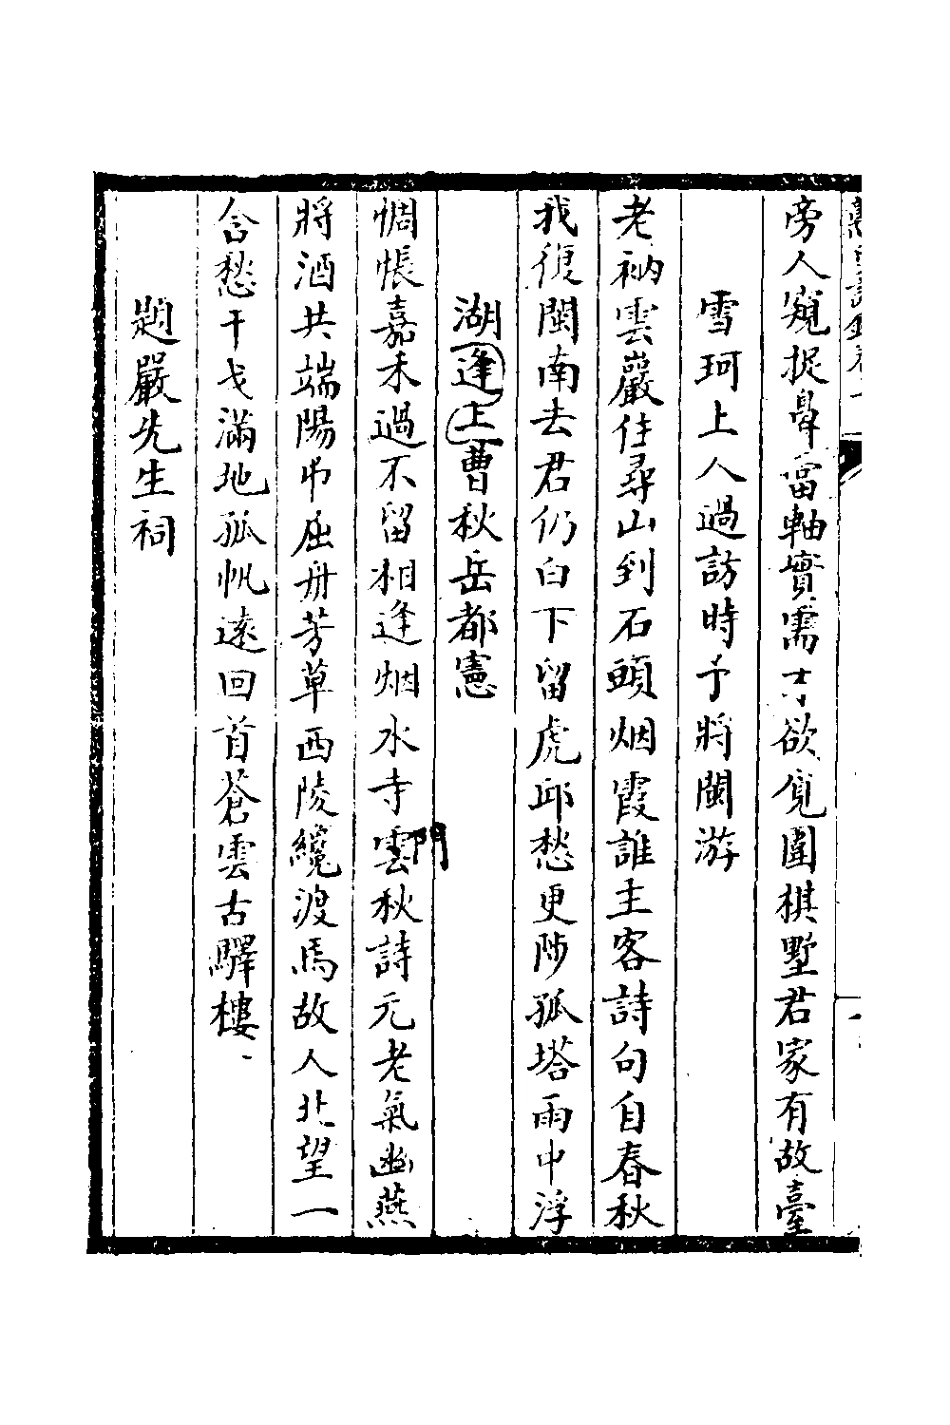 旁人窺捉鼻當軸實需才欲覓圍棋墅君家有故臺
雪珂上人過訪時予將閩游
老衲雲巖住尋山到石頭烟霞誰主客詩句自春秋
我復閩南去君仍白下留虎邱愁更陟孤塔雨中浮
湖逢上曹秋岳都憲
惆悵嘉禾過不留相逢烟水寺雲秋詩元老氣幽燕
門
將酒共端陽弔屈舟芳草西陵纔渡馬故人北望一
含愁干戈滿地孤帆遠回首蒼雲古驛樓
題嚴先生祠